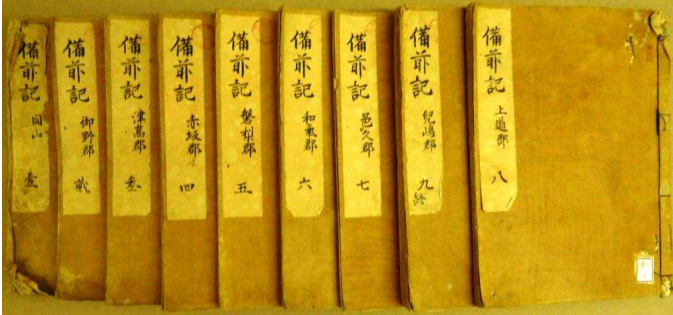 備前記
岡山
壹
備前記
御野郡
貳
備前記
津高郡
叁
備前記
赤坂郡
四
備前記
磐梨郡
五
備前記
和氣郡
六
備前記
邑久郡
七
備前記
兒嶋郡
九終
備前記
上道郡
八